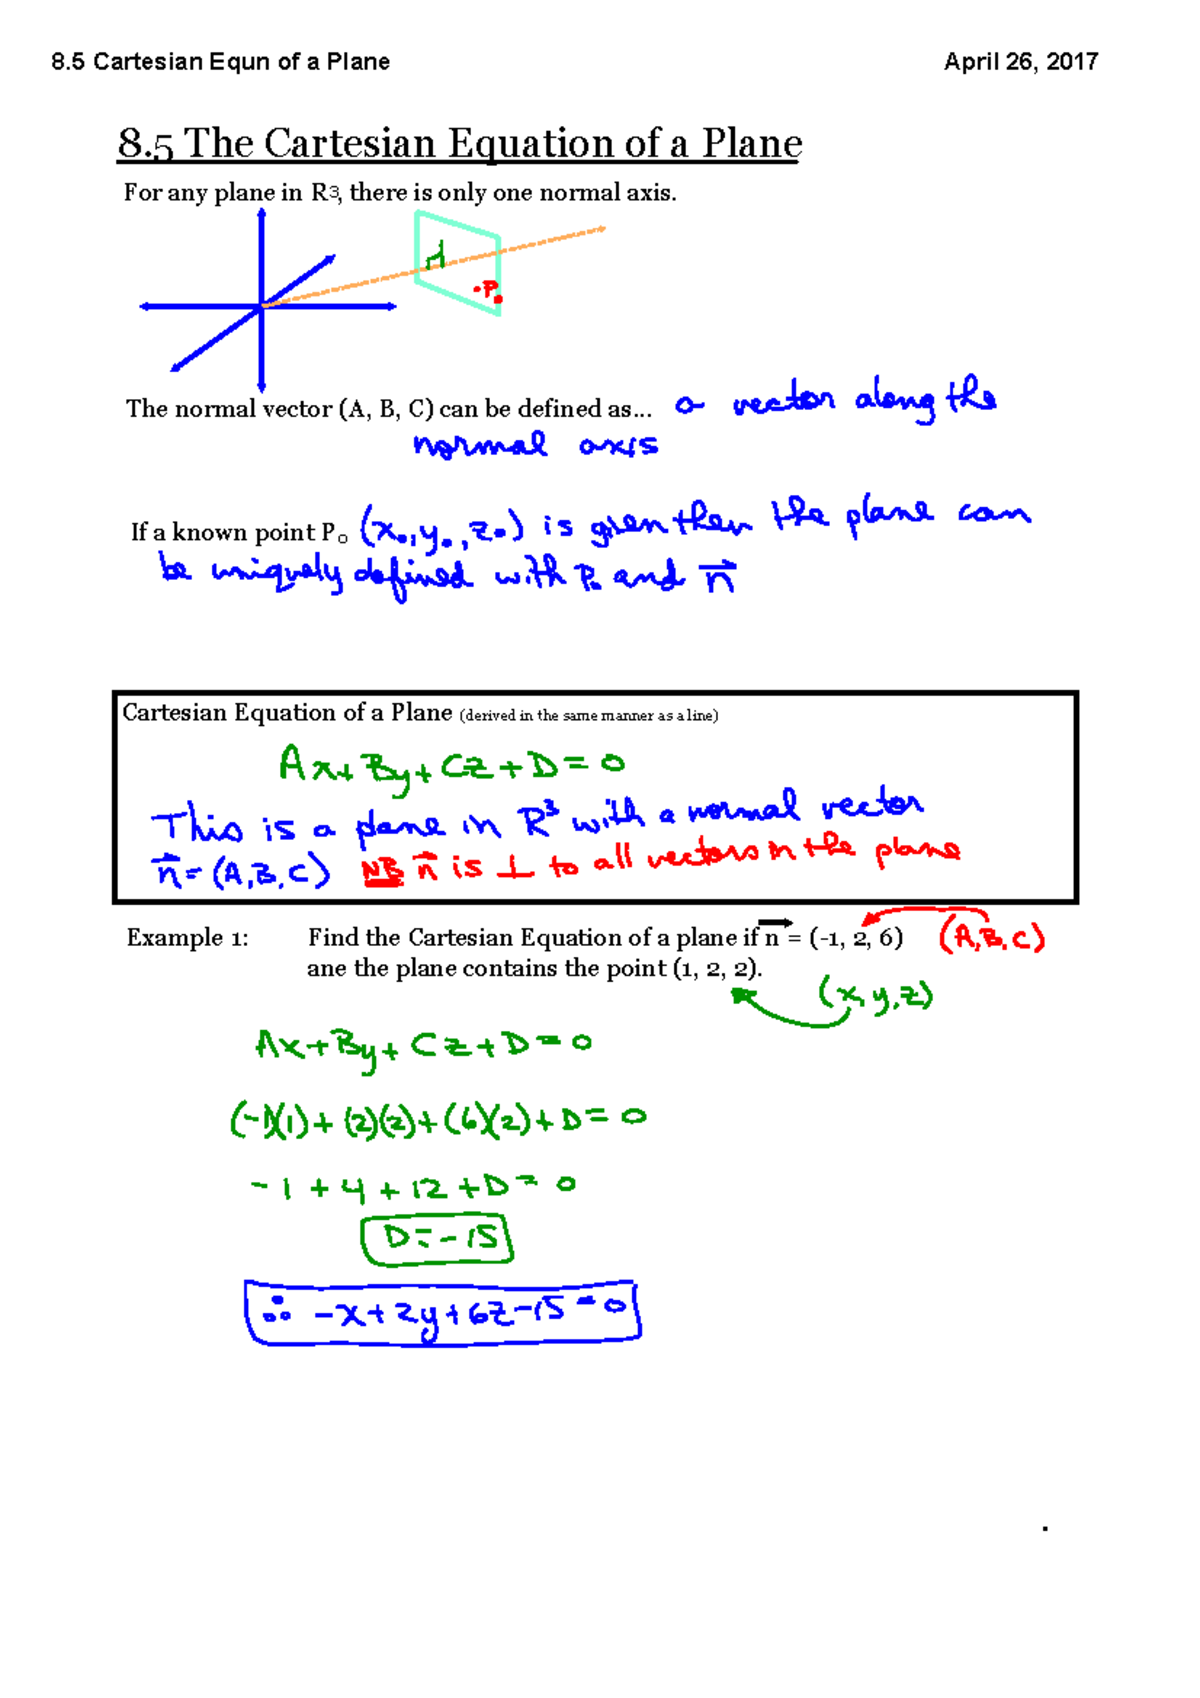 8.5 Cartesian Equn of a Plane April 26, 2017
8.5 The Cartesian Equation of a Plane
For any plane in R3, there is only one normal axis.
.P₀
The normal vector (A, B, C) can be defined as... a vector along the
normal axis
If a known point P₀ (x₀,y₀,z₀) is given then the plane can
be uniquely defined with P₀ and n⃗
Cartesian Equation of a Plane (derived in the same manner as a line)
Ax+By+Cz+D=0
This is a plane in R³ with a normal vector
n⃗=(A,B,C) NB n⃗ is ⊥ to all vectors in the plane
Example 1: Find the Cartesian Equation of a plane if n⃗ = (-1, 2, 6) (A,B,C)
ane the plane contains the point (1, 2, 2).
(x,y,z)
Ax+By+Cz+D=0
(-1)(1)+(2)(2)+(6)(2)+D=0
-1+4+12+D=0
D=-15
∴ -x+2y+6z-15=0